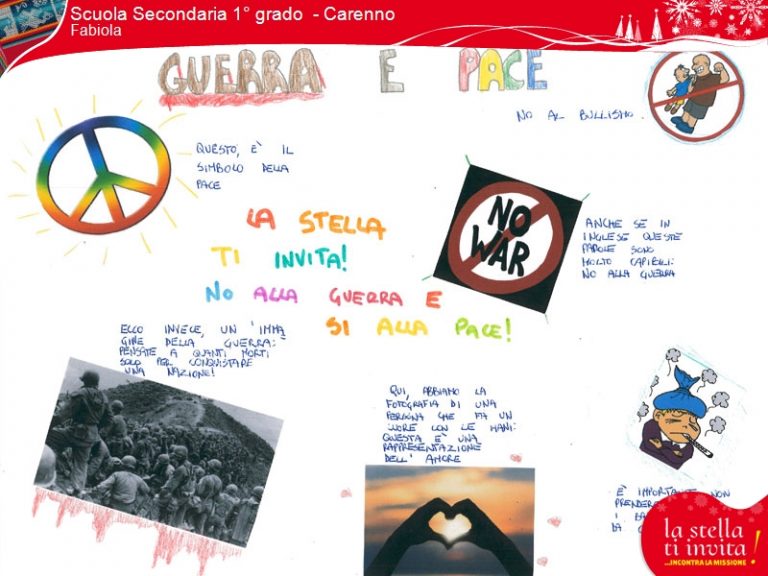 Scuola Secondaria 1° grado - Carenno
Fabiola
GUERRA E PACE
NO AL BULLISMO.
QUESTO, È IL
SIMBOLO DELLA
PACE
NO
WAR
LA STELLA
TI INVITA!
NO ALLA GUERRA E
SI ALLA PACE!
ANCHE SE IN
INGLESE QUESTE
PAROLE SONO
MOLTO CAPIBILI:
NO ALLA GUERRA
ECCO INVECE, UN "IMMA
GINE DELLA GUERRA:
PENSATE A QUANTI MORTI
SOLO PER CONQUISTARE
UNA NAZIONE!
QUI, ABBIAMO LA
FOTOGRAFIA DI UNA
PERSONA CHE FA UN
CUORE CON LE MANI:
QUESTA È UNA
RAPPRESENTAZIONE
DELL' AMORE
È IMPORTANTE NON
PRENDERE
I
LA
la stella
ti invita!
...INCONTRA LA MISSIONE